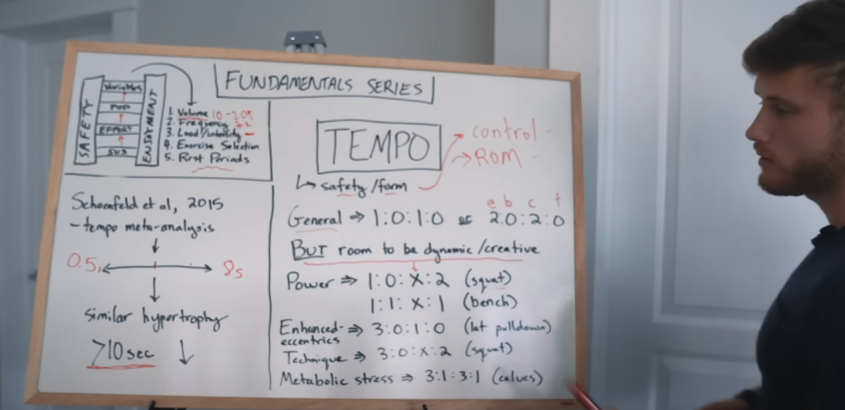 FUNDAMENTALS SERIES
SAFETY
Variables
EFFORT
ENJOYMENT
1. Volume 10-20
2. Frequency
3. Load/Intensity
4. Exercise Selection
5. Rest Periods
Schoenfeld et al, 2015
- tempo meta-analysis
0.5s
8s
similar hypertrophy
>10sec ↓
TEMPO
control -
ROM -
↳ safety/form
e b c t
General ⇒ 1:0:1:0 or 2:0:2:0
BUT room to be dynamic/creative
Power ⇒ 1:0:X:2 (squat)
1:1:X:1 (bench)
Enhanced-
eccentrics ⇒ 3:0:1:0 (lat pulldown)
Technique ⇒ 3:0:X:2 (squat)
Metabolic stress ⇒ 3:1:3:1 (calves)